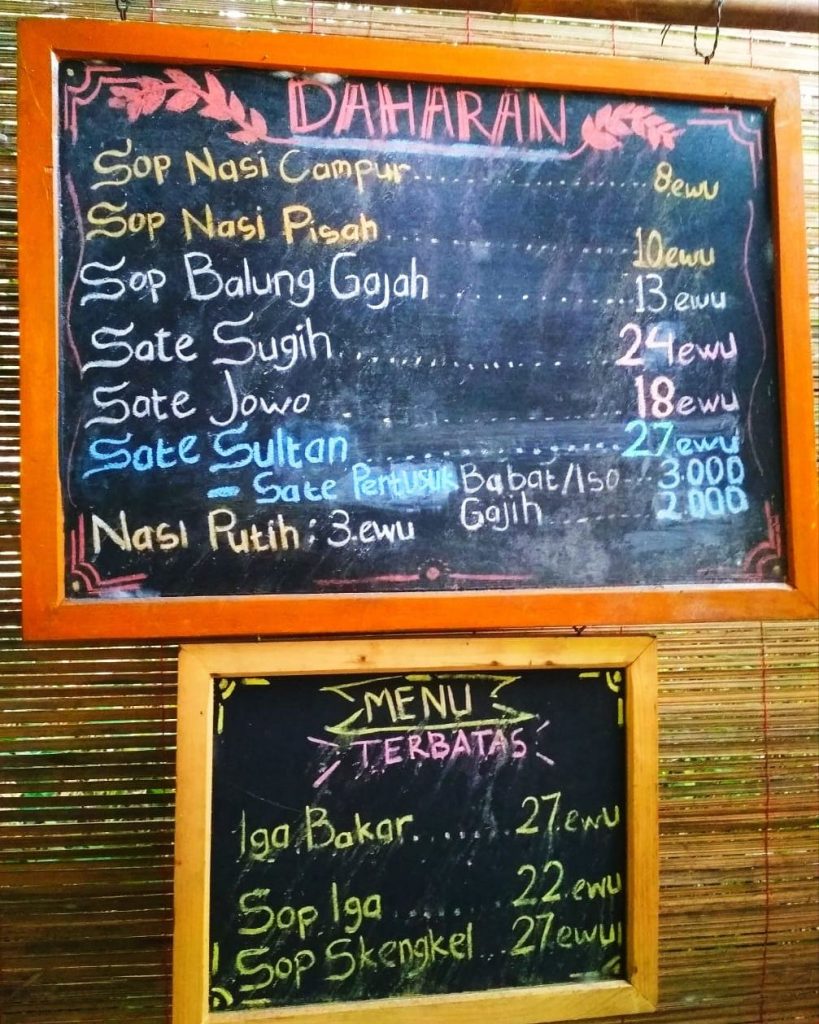 DAHARAN
Sop Nasi Campur.................8.ewu
Sop Nasi Pisah.................10ewu
Sop Balung Gajah.............13 ewu
Sate Sugih.......................24ewu
Sate Jowo.......................18ewu
Sate Sultan.....................27ewu
- Sate Pertusuk Babat/Iso...3.000
Gajih...........2.000
Nasi Putih : 3.ewu
MENU
TERBATAS
Iga Bakar.......27.ewu
Sop Iga.......22.ewu
Sop Skengkel...27ewu